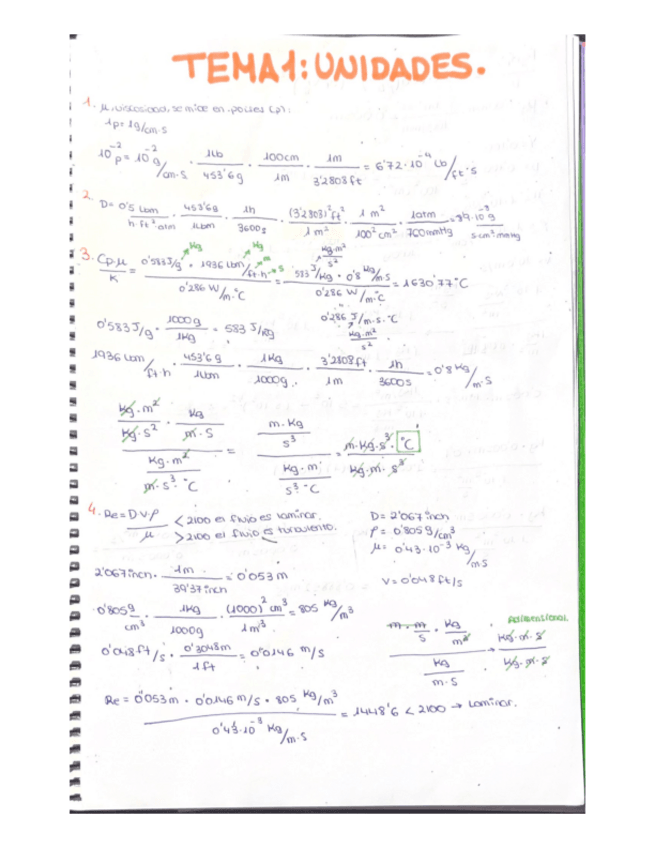 TEMA1: UNIDADES.
1. μ, viscosidad, se mide en poises (p):
1p = 1g/cm·s
10⁻² p = 10⁻² g/cm·s · 1lb/453'6g · 100cm/1m · 1m/3'2808ft = 6'72·10⁻⁴ lb/ft·s
2. D = 0'5 lbm/h·ft²·atm · 453'6g/1lbm · 1h/3600s · (3'2808)² ft²/1m² · 1m²/100² cm² · 1atm/760mmHg = 8'9·10⁻⁸ g/s·cm²·mmHg
3. Cp·μ/K = 0'583J/g · 1936 lbm/ft·h / 0'286 W/m·°C = 583 J/kg · 0'8 kg/m·s / 0'286 W/m·°C = 1630'77°C
Kg Kg m s
Kg·m²/s²
0'286 J/m·s·°C
Kg·m²/s²
0'583J/g · 1000g/1kg = 583 J/kg
1936 lbm/ft·h · 453'6g/1lbm · 1kg/1000g · 3'2808ft/1m · 1h/3600s = 0'8 kg/m·s
Kg·m²/Kg·s² · Kg/m·s / Kg·m²/m·s³·°C = m·Kg/s³ / Kg·m/s³·°C = m·Kg·s³·°C/Kg·m·s³
4. Re = D·v·ρ/μ < 2100 el fluido es laminar.
> 2100 el fluido es turbulento.
D = 2'067 inch
ρ = 0'805g/cm³
μ = 0'43·10⁻³ Kg/m·s
v = 0'048 ft/s
2'067 inch · 1m/39'37inch = 0'053 m
0'805g/cm³ · 1kg/1000g · (100)³ cm³/1m³ = 805 Kg/m³
0'048 ft/s · 0'3048m/1ft = 0'0146 m/s
Adimensional
m · m/s · Kg/m³ / Kg/m·s → Kg·m·s/Kg·m·s
Re = 0'053m · 0'0146 m/s · 805 Kg/m³ / 0'43·10⁻³ Kg/m·s = 1448'6 < 2100 → Laminar.